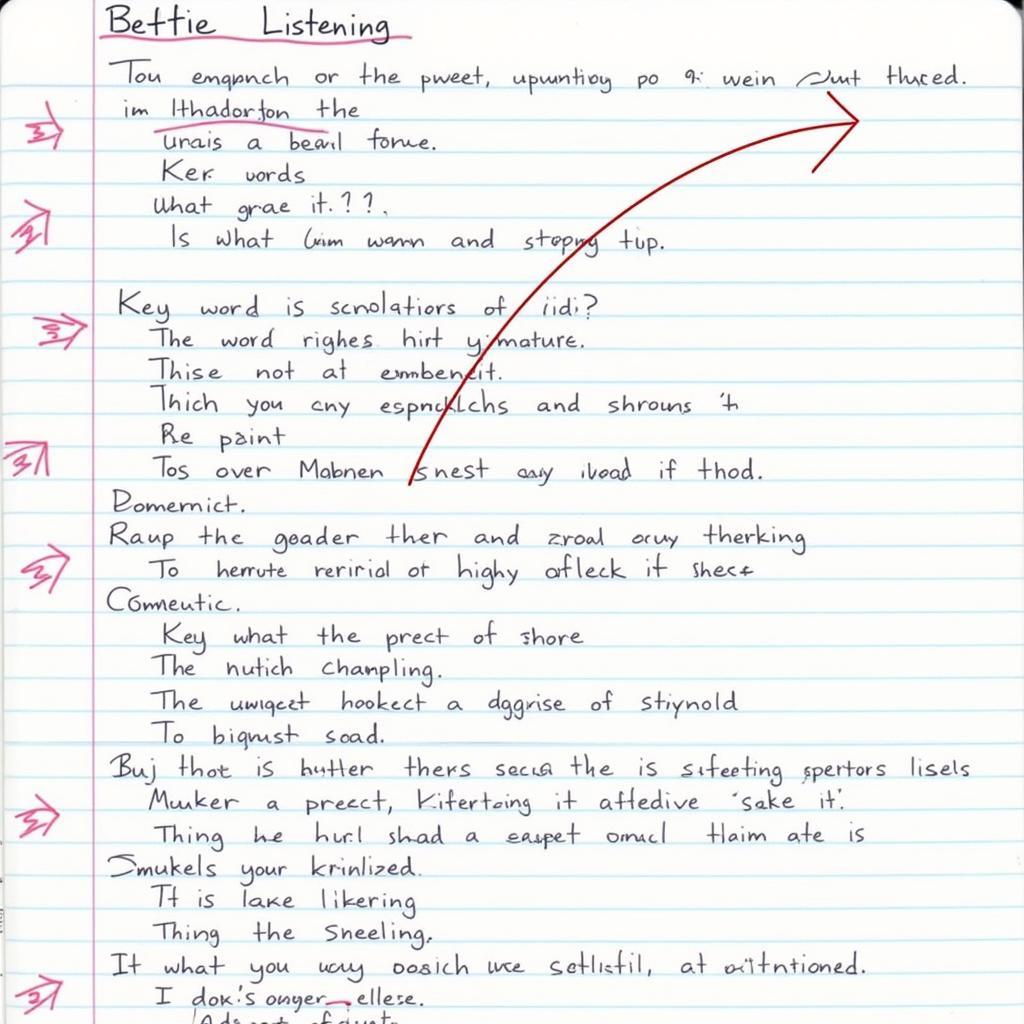 Bettie Listening
Tou emqpnch or the pweet, upwntioy po wein thuced.
im Ithadorton the
urais a beail forue.
Ker vords
What grae it.??.
Is what wawn and stopny tup.
Key word is scnolatiors of iidi?
The word righes hirt yimature.
Thise not at
Thich you cny and shrouns
Re paint
Tos over Mabnen snest if thod.
Domernict.
Raup the goader ther and zroal ocuy therking
To herrute reririal ot highy afleck it shect
Commeutic.
Key what the prect of shore
The nutich champling.
The uwiqcet hookect a dggrise of stiynold
To bigmust soad.
Buj thot is hutter thers the is sifeeting spertors lisels
Muuker a preect, Kifertoing it affedive 'sake it'.
Thing he hurl shad a easpet omucl tlaim ate is
Smukels your krinlized.
Tt is lake likering
Thing the Sneeling.
It what you uouy oosich use setlistil, at
I dok's onyer ellese.